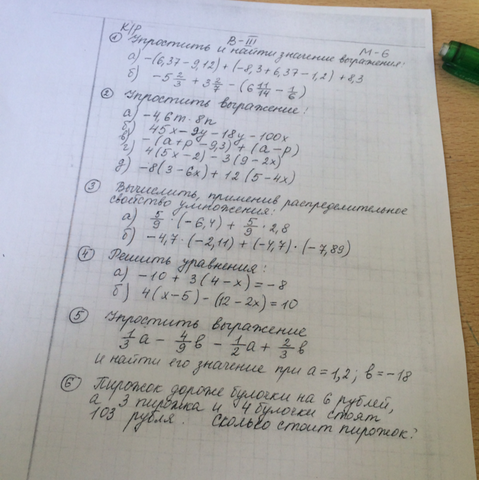 К/р В-III М-6
① Упростить и найти значение выражения:
а) -(6,37-9,12)+(-8,3+6,37-1,2)+8,3
б) -5 2/3 + 3 2/7 - (6 11/14 - 1/6)
② Упростить выражение:
а) -4,6m·8n
б) 45x-9y-18y-100x
в) -(a+p-9,3)+(a-p)
г) 4(5x-2)-3(9-2x)
д) -8(3-6x)+12(5-4x)
③ Вычислить, применив распределительное
свойство умножения:
а) 5/9·(-6,4)+5/9·2,8
б) -4,7·(-2,11)+(-4,7)·(-7,89)
④ Решить уравнения:
а) -10+3(4-x)=-8
б) 4(x-5)-(12-2x)=10
⑤ Упростить выражение
1/3 a - 4/9 b - 1/2 a + 2/3 b
и найти его значение при a=1,2; b=-18
⑥ Пирожок дороже булочки на 6 рублей,
а 3 пирожка и 4 булочки стоят
103 рубля. Сколько стоит пирожок?